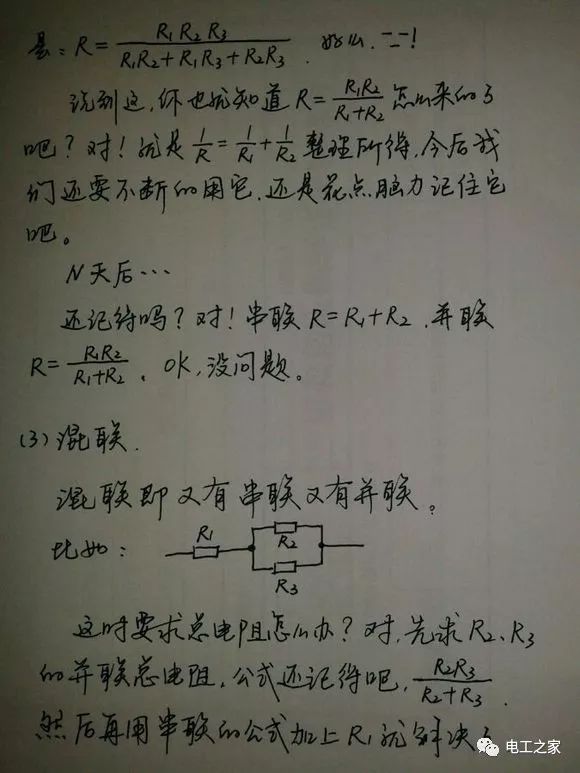 是: R = R₁R₂R₃ / (R₁R₂+R₁R₃+R₂R₃). 好么. ニニ!
说到这,你也就知道 R = R₁R₂ / (R₁+R₂) 怎么来的了
吧?对!就是 1/R = 1/R₁ + 1/R₂ 整理所得,今后我
们还要不断的用它,还是花点脑力记住它
吧。
N天后…
还记得吗?对!串联 R=R₁+R₂,并联
R = R₁R₂ / (R₁+R₂)。OK,没问题。
(3) 混联.
混联即又有串联又有并联。
比如: R₁ R₂ R₃
这时要求总电阻怎么办?对,先求R₂、R₃
的并联总电阻,公式还记得吧,R₂R₃ / (R₂+R₃).
然后再用串联的公式加上R₁就解决了
电工之家